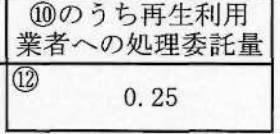 ⑩のうち再生利用
業者への処理委託量
⑫
0.25